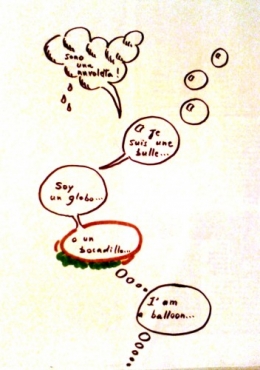 sono
una
nuvoletta!
Je
suis une
bulle...
Soy
un globo...
o un
bocadillo...
I'am
a balloon...